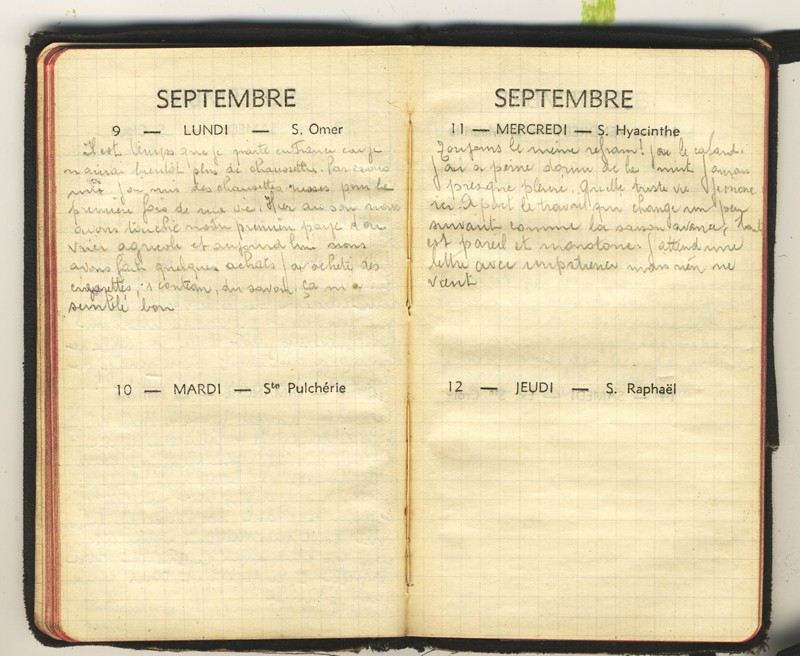 SEPTEMBRE
9 — LUNDI — S. Omer
Il est temps que je parte en France car je
n'aurai bientôt plus de chaussettes. Par
j'ai mis des chaussettes russes pour la
première fois de ma vie. Hier au soir nous
avons touché notre première paye d'ou
vrier agricole et aujourd'hui nous
avons fait quelques achats j'ai acheté des
cigarettes, 1 du savon. Ça m'a
semblé bon
10 — MARDI — Ste Pulchérie
SEPTEMBRE
11 — MERCREDI — S. Hyacinthe
Toujours le même refrain! j'ai le cafard.
J'ai a peine dormi de la nuit j'aurais
presque pleuré. Quelle triste vie je mène
ici. A part le travail qui change un peu
suivant comme la saison avance, tout
est pareil et monotone. j'attend une
lettre avec impatience mais rien ne
vient
12 — JEUDI — S. Raphaël